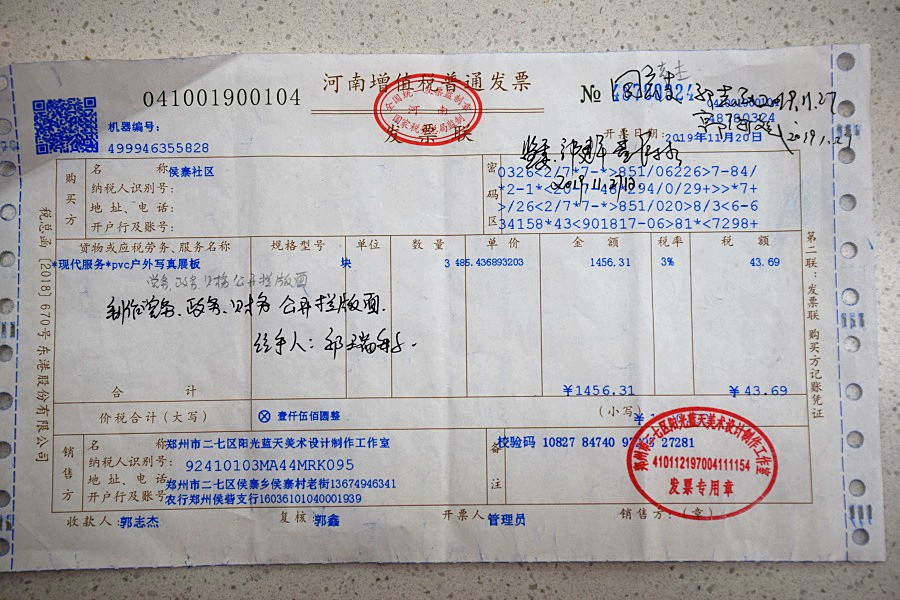 河南增值税普通发票
发票联
041001900104
全国统一发票监制章
河南
国家税务总局监制
№ 48780324
041001900104
48780324
机器编号:
499946355828
开票日期: 2019年11月20日
2019.11.27
2019.11.27
2019.11.27日
购买方
名 称: 侯寨社区
纳税人识别号:
地 址、电 话:
开户行及账号:
密码区
0326<2/7*7-*>851/06226>7-84/
>/26<2/7*7-*>851/020>8/3<6-6
34158*43<901817-06>81*<7298+
货物或应税劳务、服务名称 规格型号 单位 数 量 单 价 金 额 税率 税 额
*现代服务*pvc户外写真展板 块 3 485.436893203 1456.31 3% 43.69
党务、政务、财务公开栏版面
制作党务、政务、财务公开栏版面.
经手人:
合 计 ¥1456.31 ¥43.69
价税合计(大写) ⊗ 壹仟伍佰圆整 (小写)
销售方
名 称: 郑州市二七区阳光蓝天美术设计制作工作室
纳税人识别号: 92410103MA44MRK095
地 址、电 话: 郑州市二七区侯寨乡侯寨村老街13674946341
开户行及账号: 农行郑州侯砦支行16036101040001939
备注
校验码 10827 84740 27281
郑州市二七区阳光蓝天美术设计制作工作室
410112197004111154
发票专用章
收款人: 郭志杰 复核: 郭鑫 开票人: 管理员 销售方:(章)
税总函〔2018〕670号 东港股份有限公司
第二联:发票联 购买方记账凭证